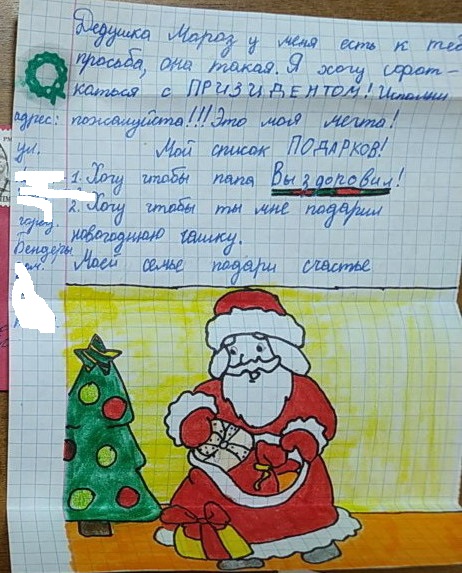 Дедушка Мороз у меня есть к теб
просьба, она такая. Я хочу сфорт-
каться с ПРИЗИДЕНТОМ! Исполни
адрес: пожалуйста!!! Это моя мечта!
ул. Мой список ПОДАРКОВ!
1. Хочу чтобы папа Выздоровил!
2. Хочу чтобы ты мне подарил
город.
новогоднюю чашку.
Бендеры
Моей семье подари счастье